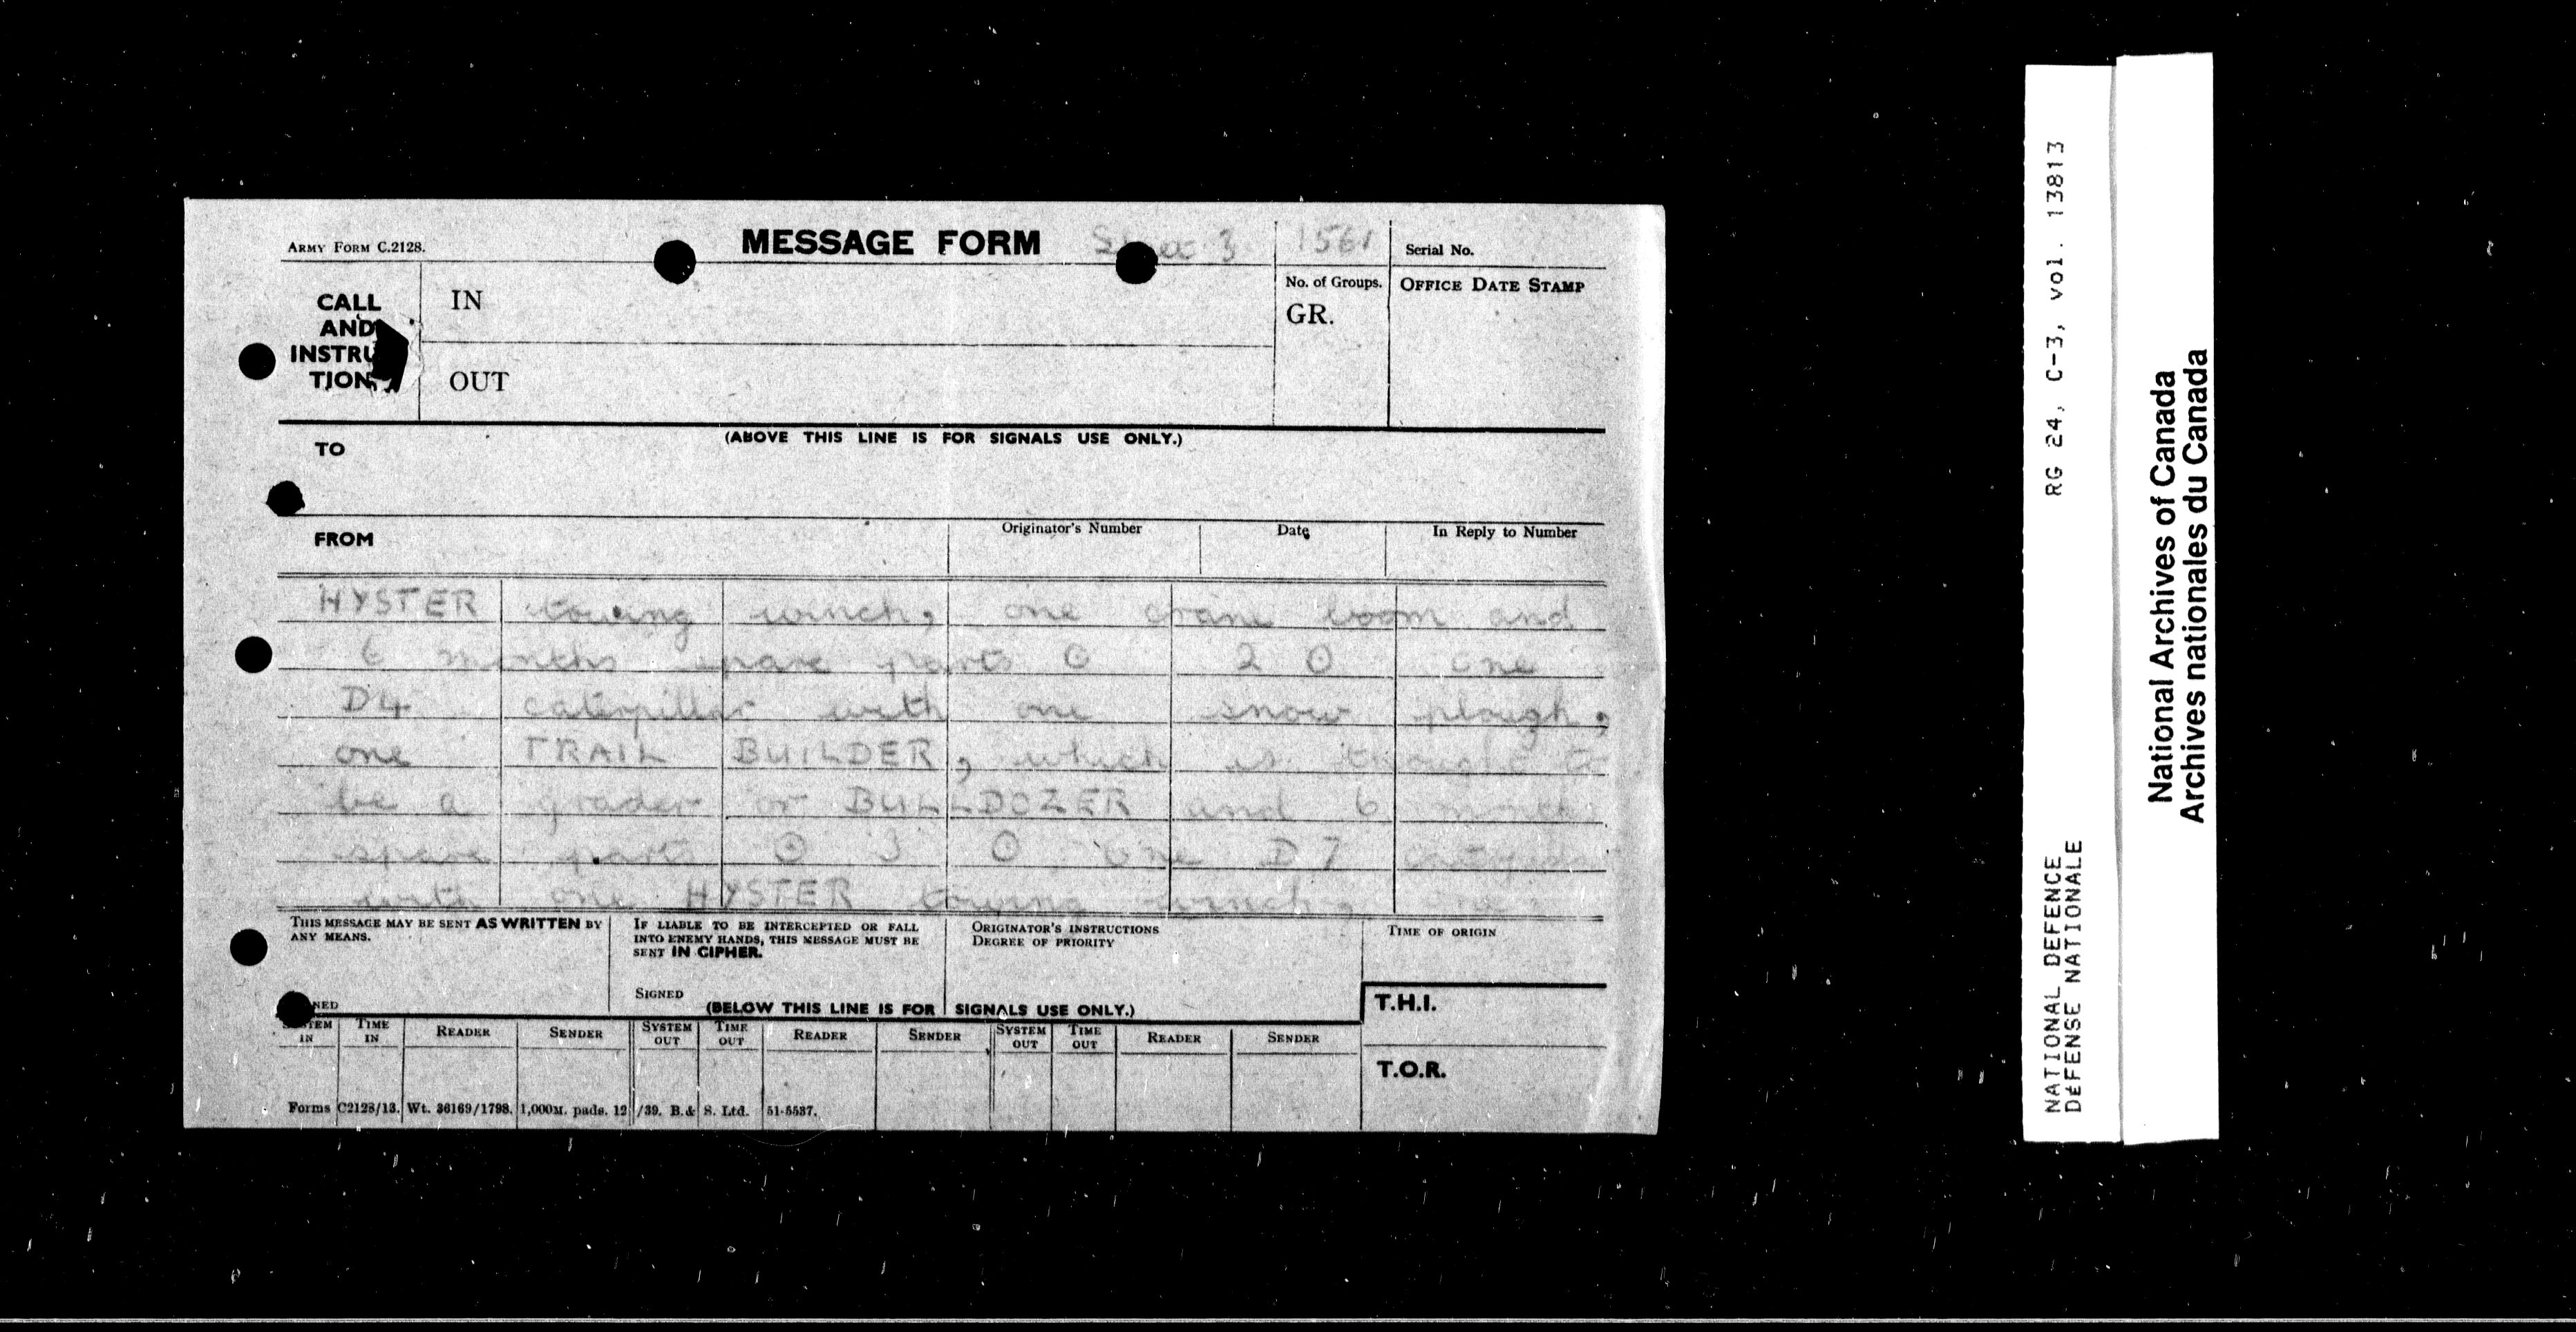 ARMY FORM C.2128.
MESSAGE FORM
3
1561
Serial No.
CALL
AND
INSTRU
TION
IN
OUT
No. of Groups.
GR.
OFFICE DATE STAMP
(ABOVE THIS LINE IS FOR SIGNALS USE ONLY.)
TO
FROM
Originator's Number
Date
In Reply to Number
HYSTER towing winch, one crane boom and
6 months spare parts ⊙ 2 ⊙ one
D4 caterpillar with one snow plough,
one TRAIL BUILDER, which is thought to
be a grader or BULLDOZER and 6 months
spare parts ⊙ 3 ⊙ One D7
with one HYSTER towing winch, one
THIS MESSAGE MAY BE SENT AS WRITTEN BY
ANY MEANS.
NED
IF LIABLE TO BE INTERCEPTED OR FALL
INTO ENEMY HANDS, THIS MESSAGE MUST BE
SENT IN CIPHER.
SIGNED
ORIGINATOR'S INSTRUCTIONS
DEGREE OF PRIORITY
TIME OF ORIGIN
(BELOW THIS LINE IS FOR SIGNALS USE ONLY.)
T.H.I.
T.O.R.
SYSTEM IN TIME IN READER SENDER SYSTEM OUT TIME OUT READER SENDER SYSTEM OUT TIME OUT READER SENDER
Forms C2128/13. Wt. 36169/1798. 1,000M. pads. 12/39. B.& S. Ltd. 51-5537.
NATIONAL DEFENCE RG 24, C-3, vol. 13813
DÉFENSE NATIONALE
National Archives of Canada
Archives nationales du Canada